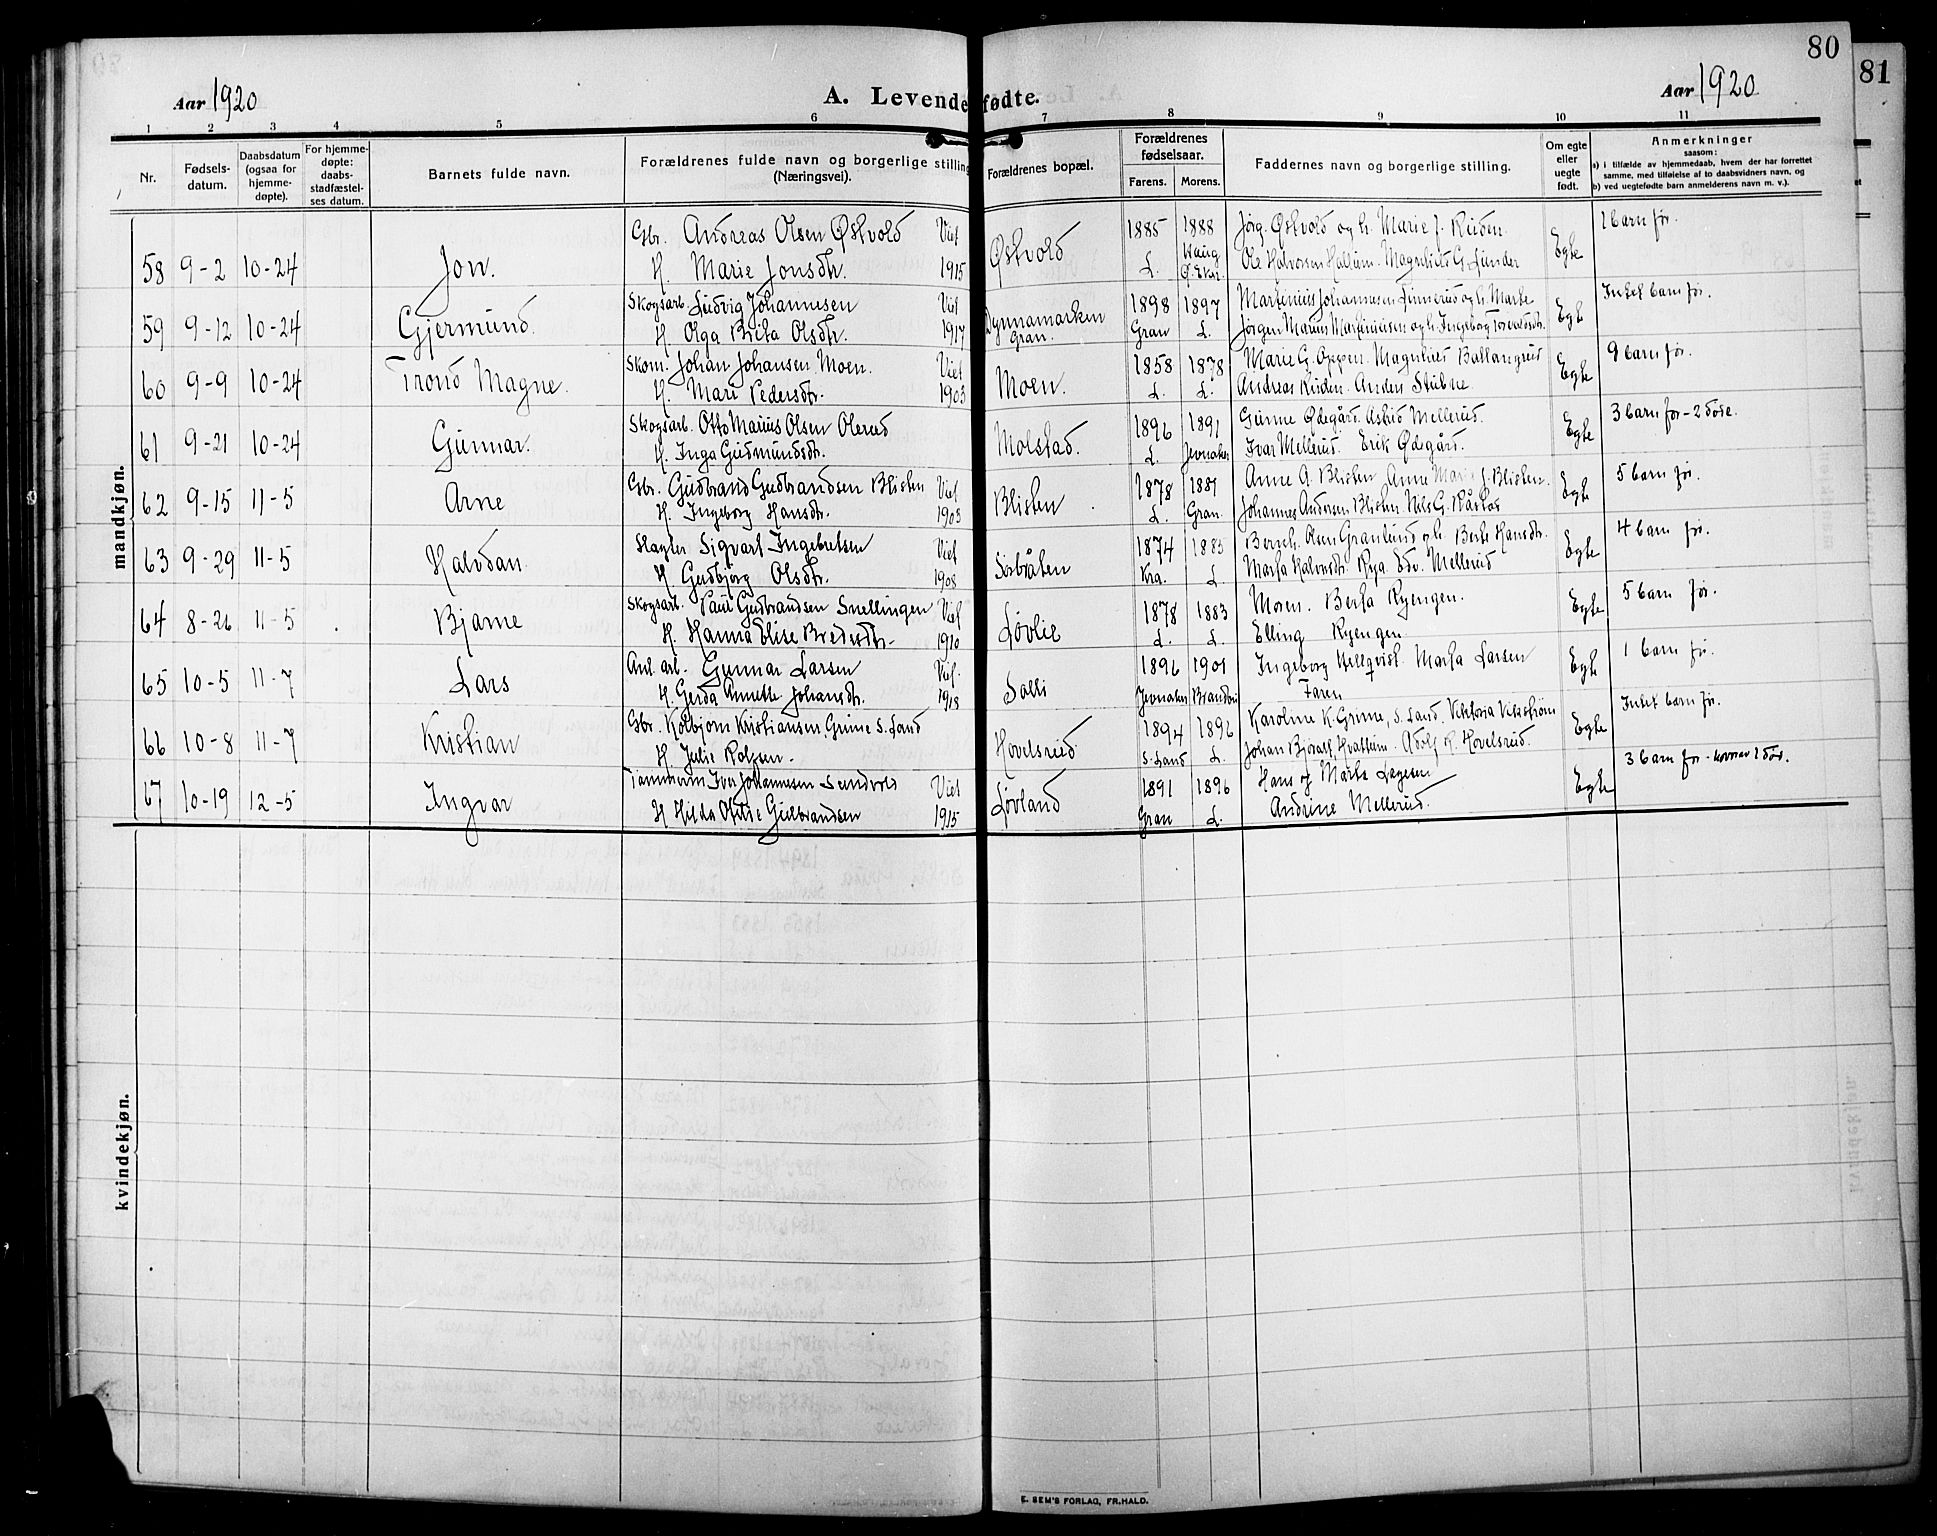 80
81
Aar 1920
A. Levendefødte.
Aar 1920
1 2 3 4 5 6 7 8 9 10 11
Nr.
Fødsels-
datum.
Daabsdatum
(ogsaa for
hjemme-
døpte).
For hjemme-
døpte:
daabs-
stadfæstel-
ses datum.
Barnets fulde navn.
Forældrenes fulde navn og borgerlige stilling
(Næringsvei).
Forældrenes bopæl.
Forældrenes
fødselsaar.
Farens. Morens.
Faddernes navn og borgerlige stilling.
Om egte
eller
uegte
født.
Anmerkninger
saasom:
a) i tilfælde av hjemmedaab, hvem der har forrettet
samme, med tilføielse af to daabsvidners navn, og
b) ved uegtefødte barn anmelderens navn m. v.).
mandkjøn.
Gbr. Andreas Olsen Østvold Viet 1885 1888 Jørg. Østvold og h. Marie J. Ruden. 1 barn før.
58 9-2 10-24 Jon. H. Marie Jonsdtr. 1915 Østvold L. Ø. Ole Halvorsen Hallum. Magnhild G. Lunder Egte
Skogsarb. Ludvig Johannesen Viet 1898 1897 Martinius Johannesen Linnerud og h. Marte Intet barn før.
59 9-12 10-24 Gjermund. H. Olga Brita Olsdtr. 1917 Dynnamarken Gran. Gran L. Jørgen Marius Martiniusen og h. Ingeborg Egte
Skom. Johan Johansen Moen. Viet 1858 1878 Marie G. Oppen. Magnhild Ballangrud 9 barn før.
60 9-9 10-24 Trond Magne. H. Mari Pedersdtr. 1903 Moen. L. L. Andreas Ruden. Anders Stubne. Egte
Skogsarb. Otto Marius Olsen Olerud 1896 1891 Gunne Ødegård. Astrid Mellerud. 3 barn før - 2 døde.
61 9-21 10-24 Gunnar. H. Inga Gudmundsdtr. Molstad. L. Jevnaker Ivar Mellerud. Erik Ødegård. Egte
Gbr. Gudbrand Gudbrandsen Blisten Viet 1878 1881 Anne A. Blisten. Anne J. Blisten. 5 barn før.
62 9-15 11-5 Arne H. Ingeborg Hansdtr. 1903 Blisten L. Gran. Johannes Andersen Blisten. Nils G. Egte
Slagter Sigvart Ingebretsen Viet 1874 1885 Bernh. Olsen Granlund og h. Berte Hansdtr. 4 barn før.
63 9-29 11-5 Halvdan. H. Gudbjørg Olsdtr. 1908 Sørbråten Kra. L. Marta Halvorsdtr. Rya. Edv. Mellerud Egte
Skogsarb. Paul Gudbrandsen Snellingen Viet 1878 1883 Moren. Berta Ryengen. 5 barn før.
64 8-26 11-5 Bjarne H. Hanna Elise Bredesdtr. 1910 Løvlie L. L. Elling Ryengen Egte
Anl. arb. Gunnar Larsen Viet. 1896 1901 Ingeborg Hellqvist. Marta Larsen 1 barn før.
65 10-5 11-7 Lars H. Gerda Annette Johansdtr. 1918 Jevnaker Brandbu Faren Egte
Gbr. Kolbjørn Kristiansen Grime S. Land 1894 1896 Karoline K. Grime, S. Land, Viktoria Intet barn før.
66 10-8 11-7 Kristian H. Julie Rolfsen. Hovelsrud S. Land L. Johan Adolf R. Hovelsrud. Egte
Tømmerm. Iver Johannesen Viet 1891 1896 Hans og Marta 3 barn før. 1 død.
67 10-19 12-5 Ingvar H. Hilda Gulbrandsen 1915 Løvland Gran L. Andrine Mellerud. Egte
kvindekjøn.
E. SEM'S FORLAG, FR.HALD.